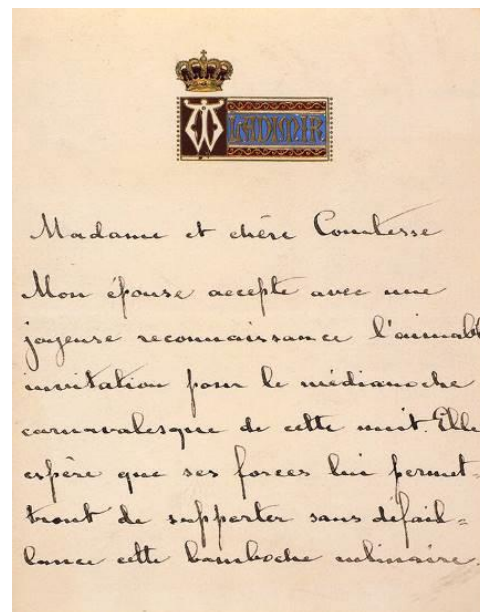 WLADIMIR
Madame et chère Comtesse
Mon épouse accepte avec une
joyeuse reconnaissance l'aimabl
invitation pour le médianoche
carnavalesque de cette nuit. Elle
espère que ses forces lui permet-
tront de supporter sans défail=
lance cette bamboche culinaire.